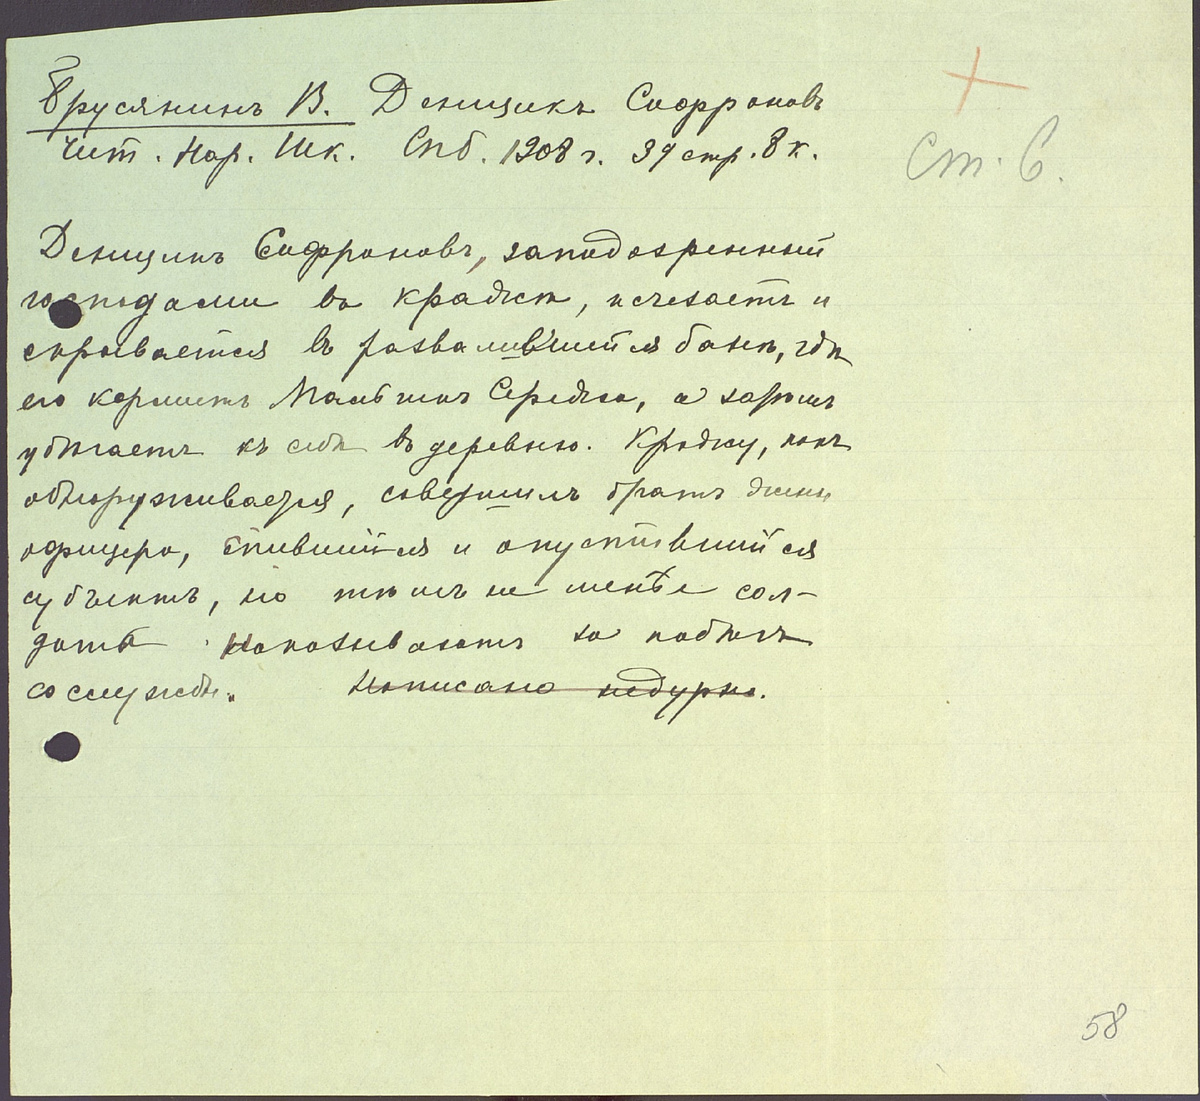 Брусянинъ В. Денщикъ Софроновъ
Чит. Нар. Шк. Спб. 1908 г. 39 стр. 8 к.
Ст. С.
Денщикъ Софроновъ, заподозренный
господами въ кражѣ, исчезаетъ и
скрывается въ развалившейся банѣ, гдѣ
его кормитъ мальчикъ Сережа, а затѣмъ
убѣгаетъ къ себѣ въ деревню. Кражу, какъ
обнаруживается, совершилъ братъ жены
офицера, спившійся и опустившійся
субъектъ, но тѣмъ не менѣе сол-
дата наказываютъ за побѣгъ
со службы. Написано недурно.
58